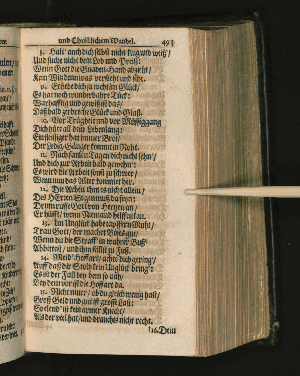 und Christlichem Wandel. 493
8. Halt auch dich selbst nicht klug und witz/
Und suche nicht dein Lob und Preiß:
Wenn Gott die Gnaden-Hand abzieht/
Kein Mindern was versteht und siht.
9. Erhebe dich ja nicht im Glück/
Es hat noch wunderbahre Tück:
Warhafftig und gewiß ist das/
Daß bald zerbreche Glück und Glaß.
10. Vor Trägheit und vor Müssiggang
Dich hüte all dein Lebenlang:
Ein fleissiger hat immer Brot/
Der Ledig-Gänger kommt in Noht.
11. Nach faulen Tagen dich nicht sehn/
Und dich zur Arbeit bald gewehn:
Es wird die Arbeit sonst zu schwer/
Wenn nun das Alter kommet her.
12. Die Arbeit thut es nicht allein/
Des HErren Segen muß da seyn:
Drum ruffe Gott von Hertzen an/
Er hilfft/ wenn Niemand helffen kan.
13. Im Unglück habe tapffern Muht/
Trau Gott/ der machet Böses gut/
Wenn du die Straff in wahrer Buß
Abbittest/ und ihm fällst zu Fuß.
14. Meid Hoffart/ acht dich gering/
Auff daß dir Stoltz kein Unglück bring:
Es ist der Fall bey dem so nah/
Bey dem vor ist die Hoffart da.
15. Nicht murr/ ob du gleich wenig hast/
Groß Geld und gut ist grosse Last:
So elend ist kein armer Knecht/
Als der viel hat/ und brauchts nicht recht.
16. Dein